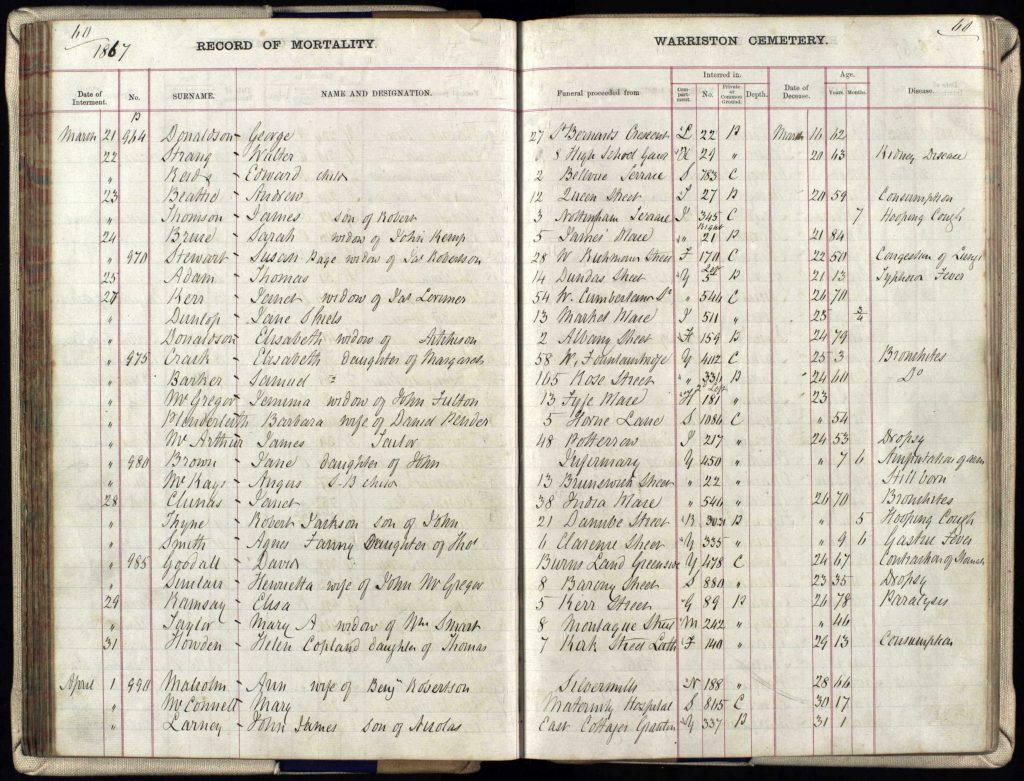 60
60
1867
RECORD OF MORTALITY.
WARRISTON CEMETERY.
Date of Interment. No. SURNAME. NAME AND DESIGNATION. Funeral proceeded from Interred in. Compartment. No. Private or Common Ground. Depth. Date of Decease. Age. Years Months. Disease.
B
March 21 964 Donaldson - George 27 St Bernards Crescent L 22 P March 16 62
22 Strang - Walter 8 High School Yards 29 " 20 63 Kidney Disease
" - Edward child 2 Bellevue Terrace S 783 C
23 Beattie - Andrew 12 Queen Street 27 P 20 59 Consumption
" Thomson - James son of Robert 3 Nottingham Terrace 345 C 7 Hooping Cough
24 Bruce - Sarah widow of John Kemp 5 James' Place " 21 P 21 84
" 970 Stewart - Susan Page widow of Jas Robertson 28 W Richmond Street F 170 C 22 50 Congestion of Lungs
25 Adam - Thomas 14 Dundas Street Y 5 P 21 13 Typhoid Fever
27 Kerr - Janet widow of Jas Lorimer 54 W. Cumberland St " 546 C 26 70
" Dunlop - Jane Shiels 13 Market Place 511 " 25 3/4
" Donaldson - Elisabeth widow of Aitchison 2 Albany Street 159 P 24 79
" 975 Craik - Elisabeth daughter of Margaret 58 W. Fountainbridge Y 402 C 25 3 Bronchites
" Barker - Samuel 165 Rose Street " 336 P 24 60 Do
" McGregor - Jemma widow of John Fulton 13 Fyfe Place 181 " 23
" Plenderleith Barbara wife of David Pender 5 Horne Lane S 1086 C " 54
" McArthur James Tailor 48 Potterrow 217 " 24 53 Dropsy
" 980 Brown - Jane daughter of John Infirmary Y 450 " " 7 6 Amputation of arm
" McKay - Angus S-B child 13 Brunswick Street " 22 " Still born
28 Clunas - Janet 38 India Place " 546 " 26 70 Bronchites
" Thyne - Robert Jackson son of John 21 Danube Street P " 5 Hooping Cough
" Smith - Agnes Fanny Daughter of Thos 6 Clarence Street Y 335 " " 9 6 Gastric Fever
" 985 Goodall - David Burns Land Greenside Y 478 C 24 67 Contraction of Stomach
" Sinclair - Henrietta wife of John McGregor 8 Barony Street S 880 " 23 35 Dropsy
29 Ramsay - Elisa 5 Kerr Street 89 P 26 78 Paralysis
" Taylor - Mary A widow of Wm Smart 8 Montague Street M 242 " " 46
31 Howden - Helen Copland daughter of Thomas 7 Kirk Street Leith F 140 " 29 13 Consumption
April 1 990 Malcolm - Ann wife of Benj Robertson Silvermills N 188 " 28 66
" McConnell - Mary Maternity Hospital S 815 C 30 17
" Larney - John James son of Nicolas East Cottages Granton Y 337 P 31 1